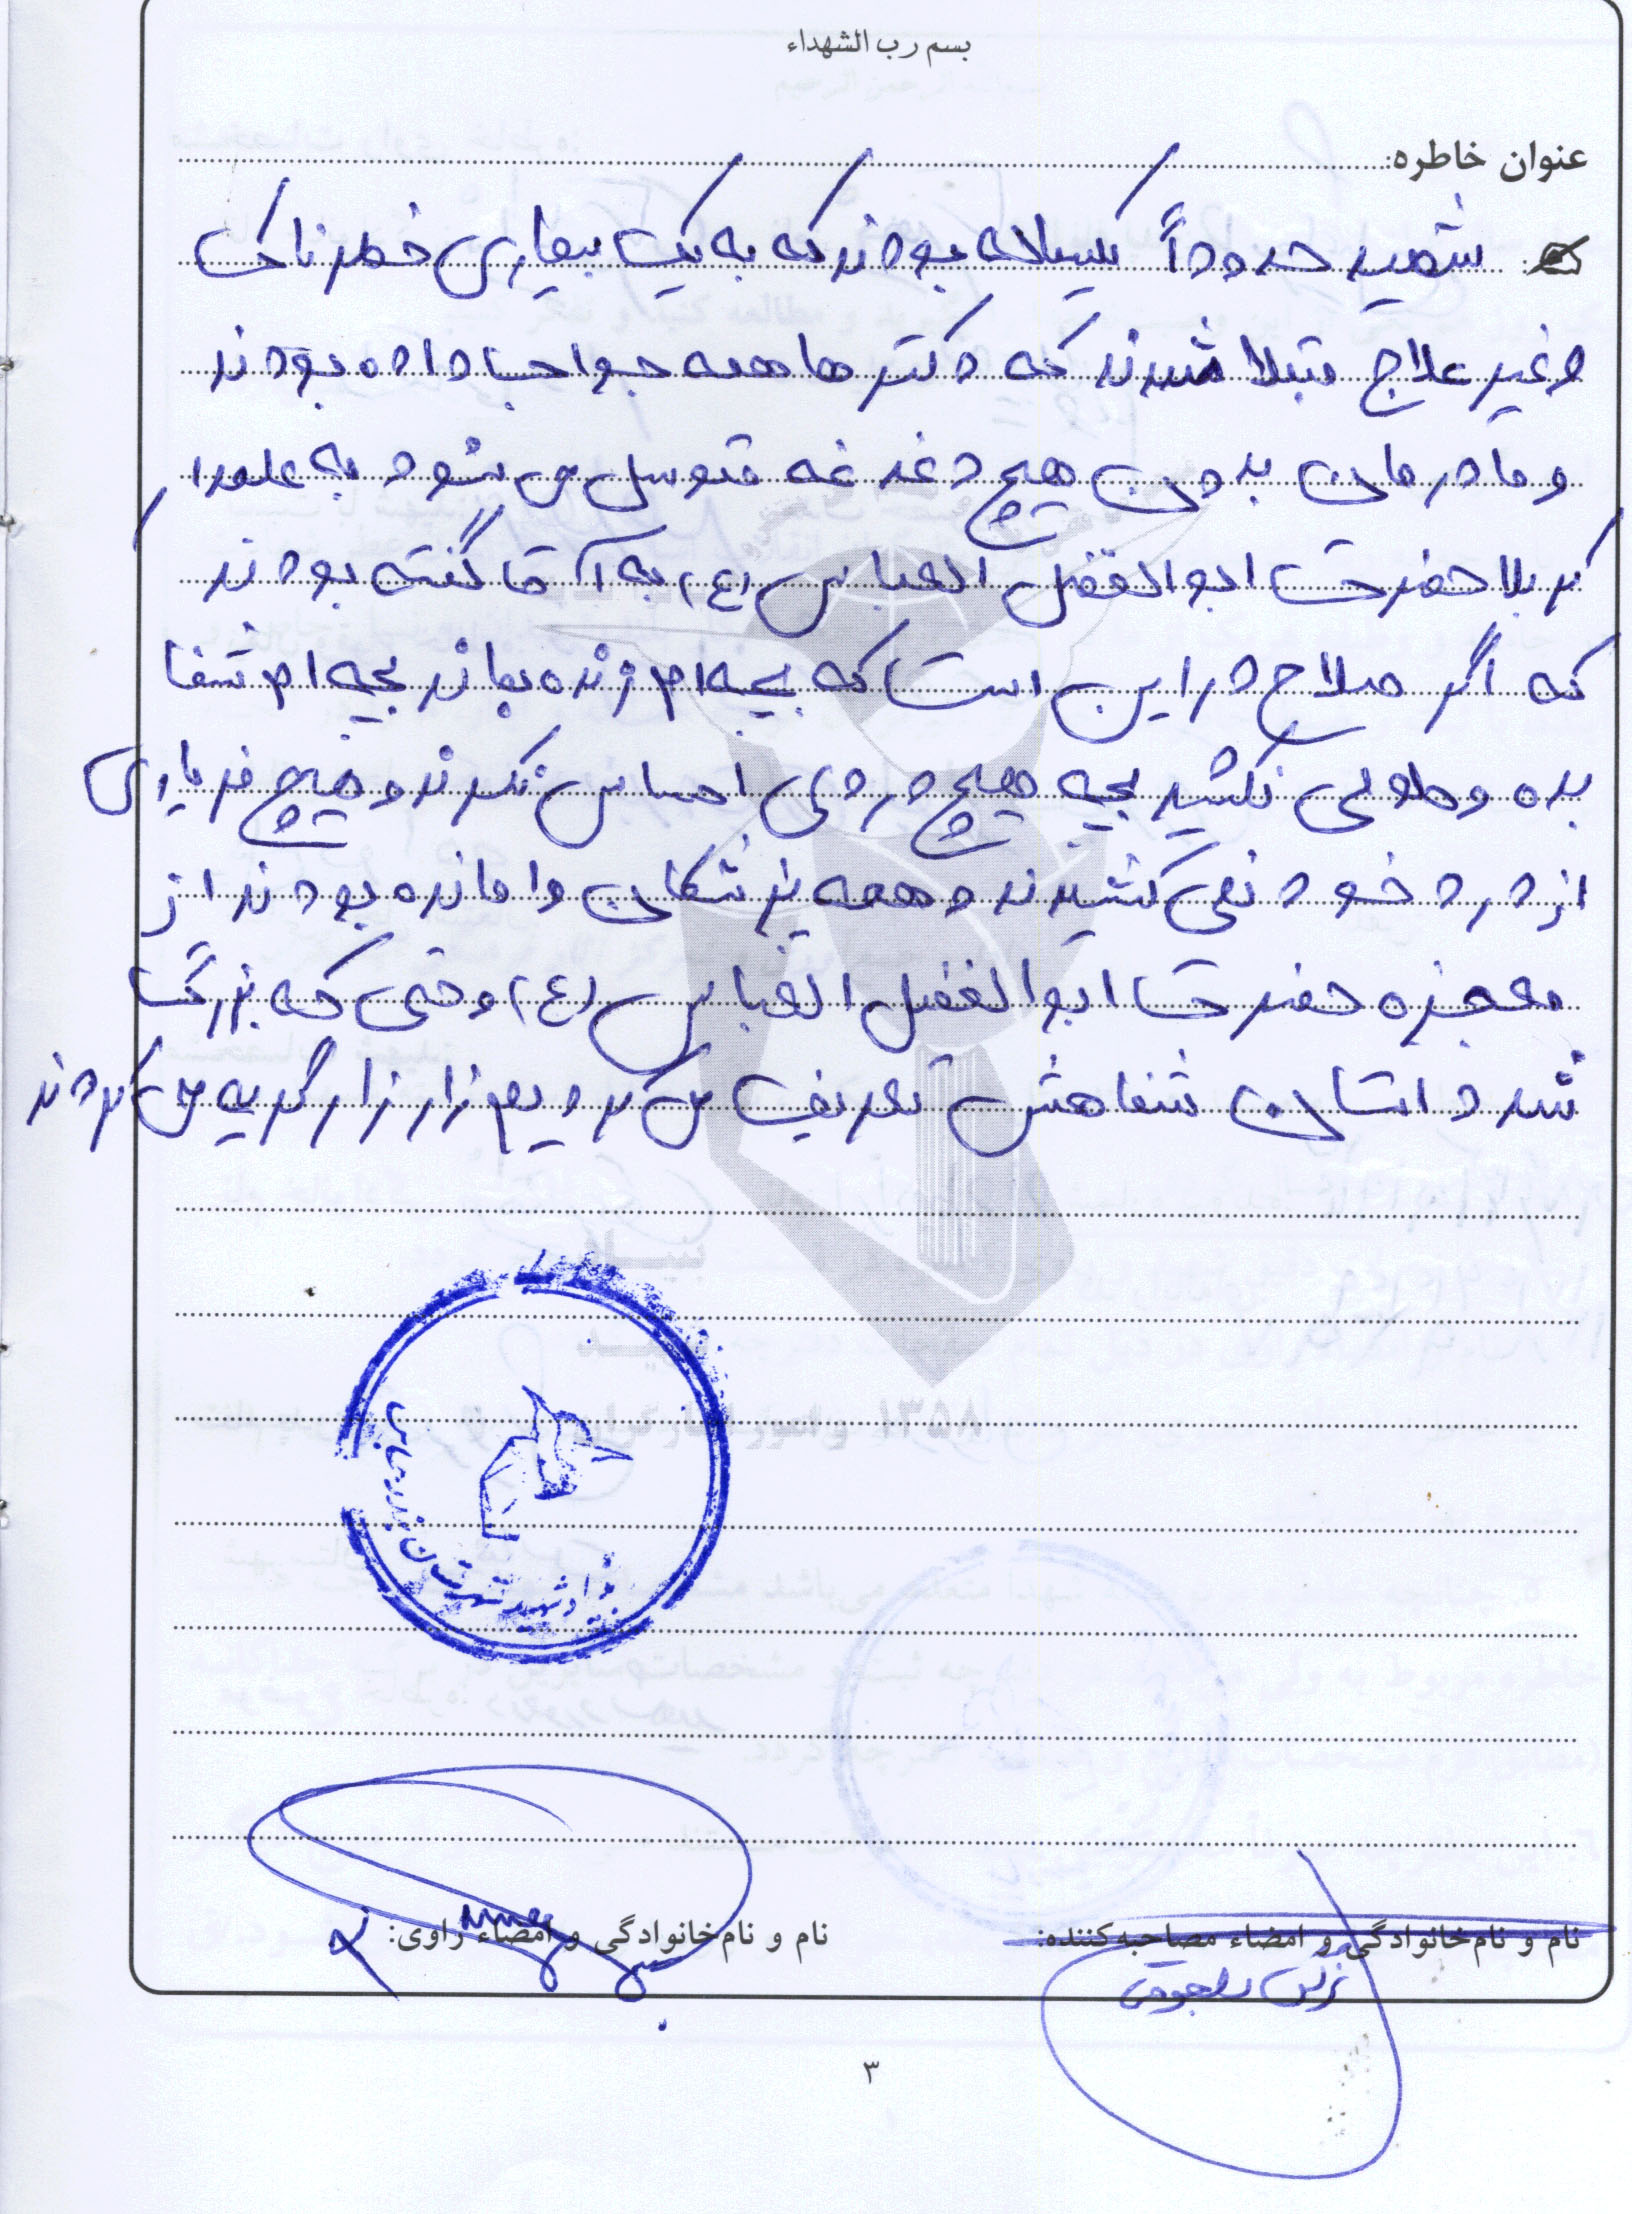 بسم رب الشهداء
عنوان خاطره:
شهید حدوداً یکساله بودند که به یک بیماری خطرناک
و غیر علاج مبتلا شدند که دکتر ها همه جواب داده بودند
و مادرمان بدون هیچ دغدغه متوسل می شود به علمدار
کربلا حضرت ابوالفضل العباس (ع) به آقا گفته بودند
که اگر صلاح در این است که بچه ام زنده بماند بچه ام شفا
بده و طولی نکشید بچه هیچ دردی احساس نکردند و هیچ فریادی
از درد خود نمی کشیدند و همه پزشکان وا مانده بودند از
معجزه حضرت ابوالفضل العباس (ع) وقتی که بزرگ
شد داستان شفاهش تعریف می کردیم زار زار گریه می کردند
بنیاد شهید شهرستان بندرعباس
نام و نام‌خانوادگی و امضاء مصاحبه‌کننده:
نام و نام‌خانوادگی و امضاء راوی:
۳